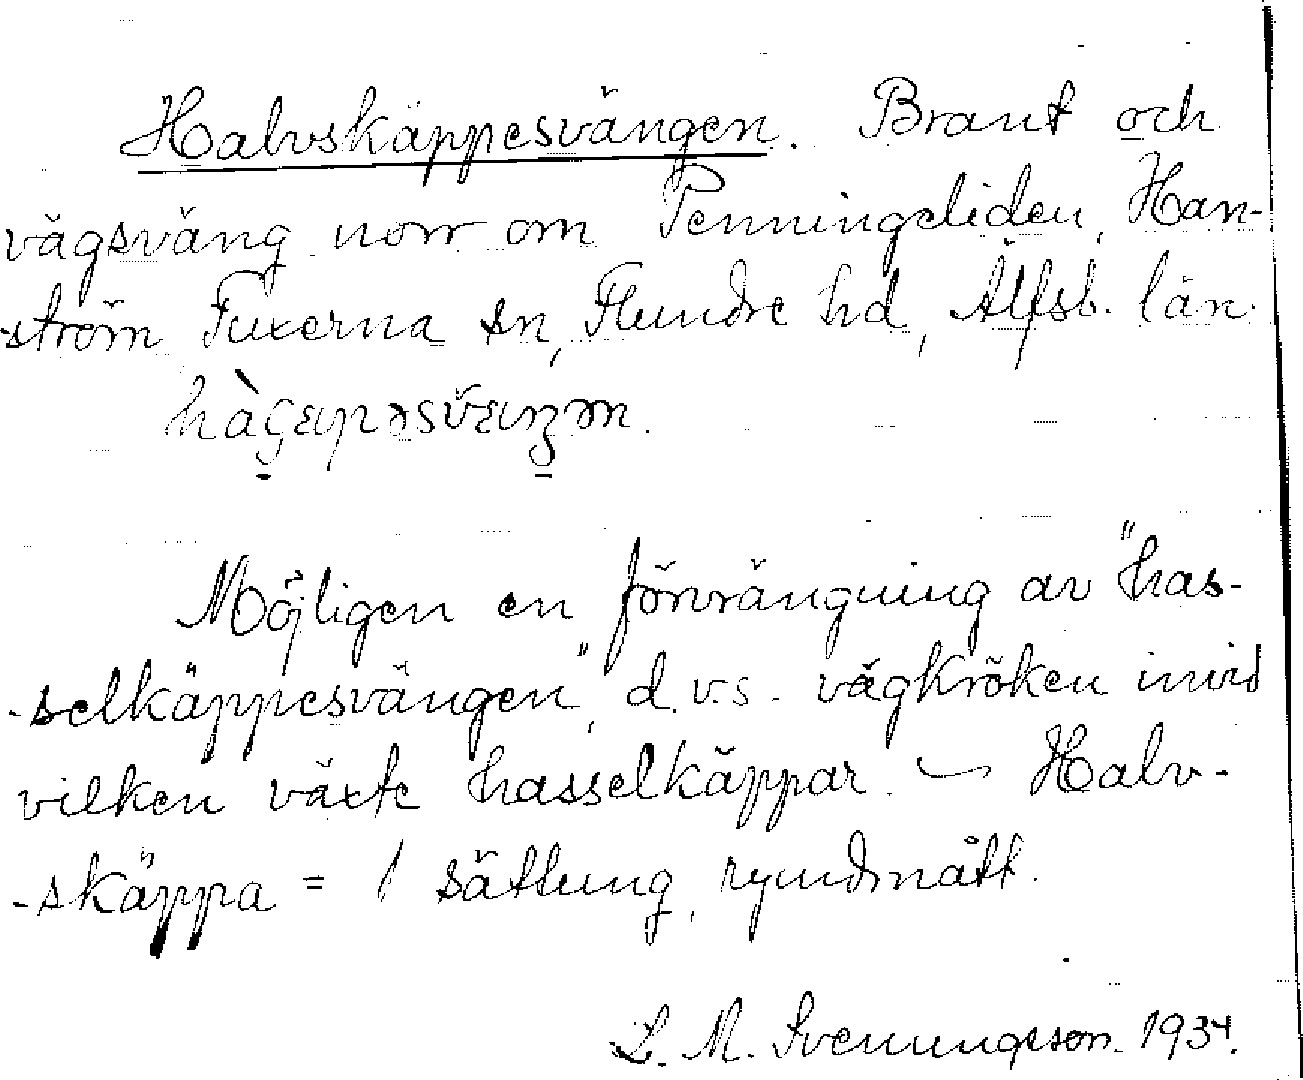 Halvskäppesvängen. Brant och
vägsväng norr om Penningeliden, Han-
-ström Fuxerna sn, Flundre hd, Älfsb. län.
Möjligen en förvrängning av "has-
-selkäppesvängen", d.v.s. vägkröken invid
vilken växte hasselkäppar. – Halv-
-skäppa = 1 sättung, rymdmått.
L. M. Svenungsson. 1934.